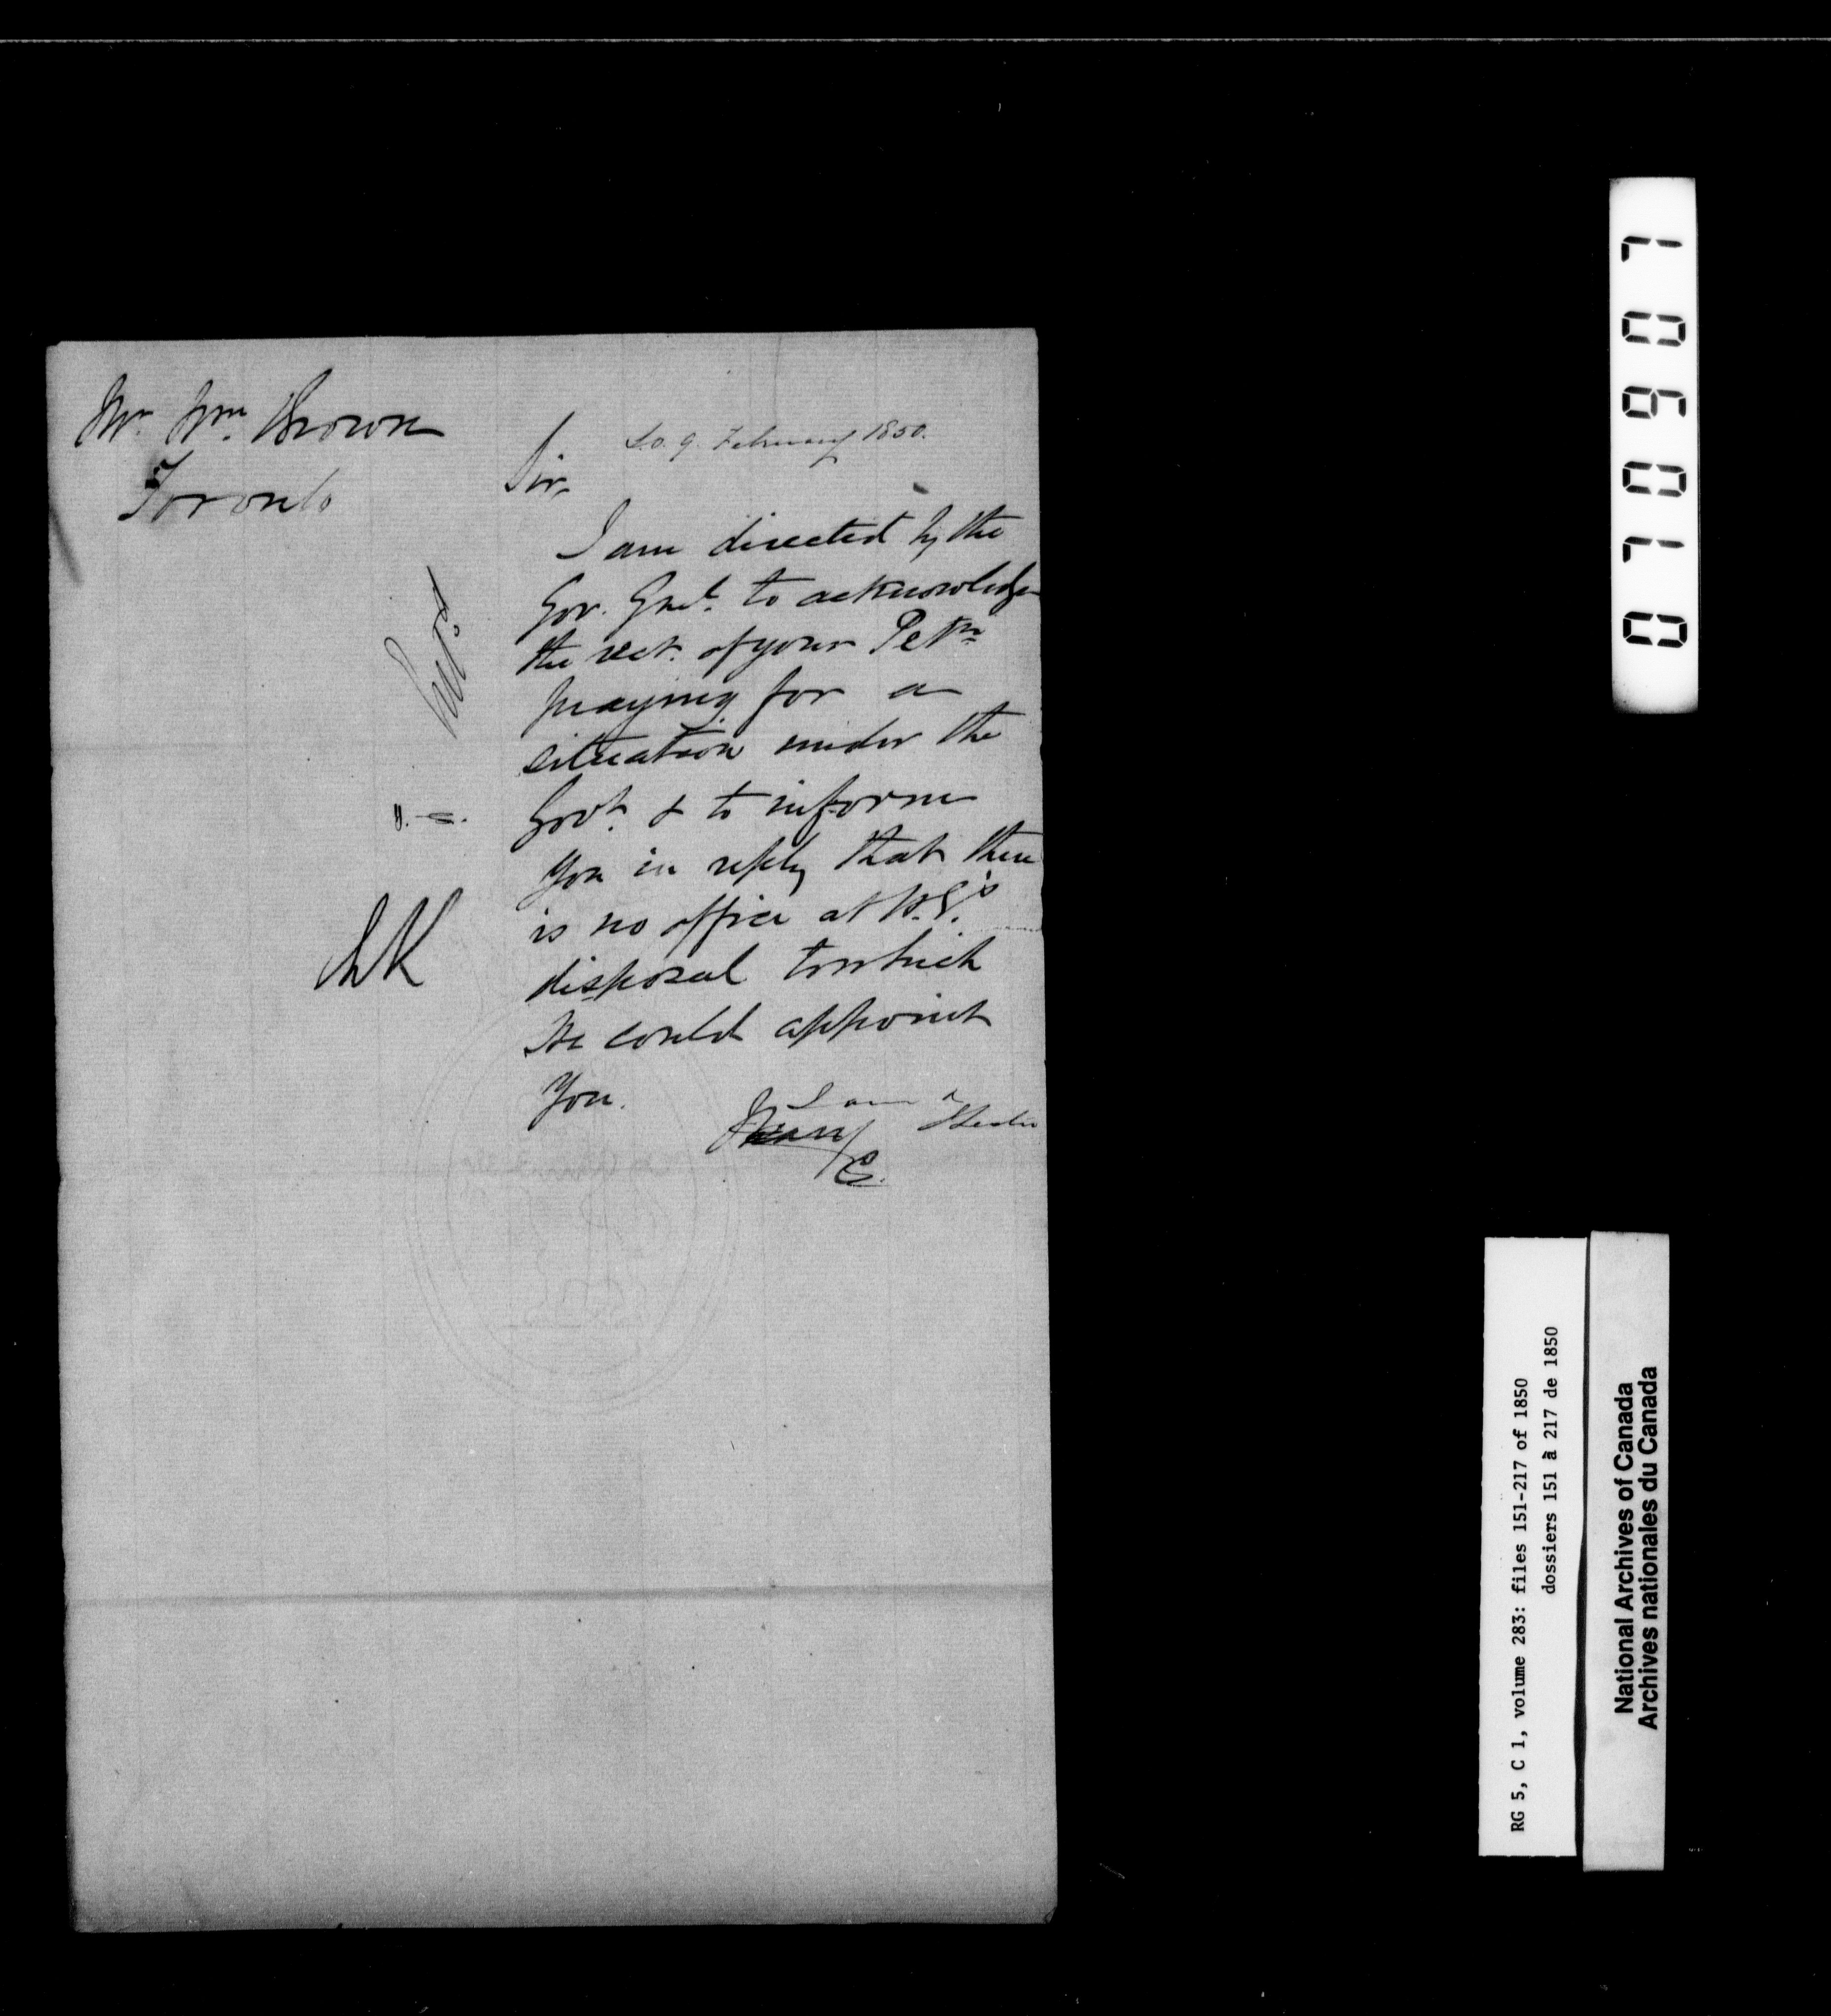 Mr. Wm. Brown
Toronto
S.O. 9 February 1850.
Sir,
I am directed by the
Gov. Genl. to acknowledge
the rect. of your Petn
praying for a
situation under the
Govt. & to inform
you in reply that there
is no office at H.E.'s
disposal to which
He could appoint
you.
I am
070907
RG 5, C 1, volume 283: files 151-217 of 1850
dossiers 151 à 217 de 1850
National Archives of Canada
Archives nationales du Canada